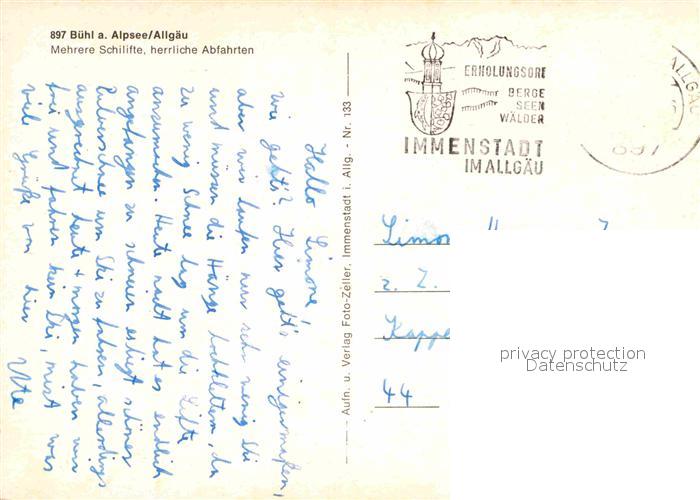 897 Bühl a. Alpsee/Allgäu
Mehrere Schilifte, herrliche Abfahrten
Hallo Simone,
wie geht's? Hier geht's einigermaßen,
aber wir laufen nur sehr wenig Ski
und müssen die Hänge hochklettern, da
zu wenig Schnee lag um die Lifte
anzumachen. Heute nacht hat es endlich
angefangen zu schneien es liegt schöner
Pulverschnee um Ski zu fahren, allerdings
ausgerechnet heute + morgen haben wir
frei und fahren kein Ski, mist was
viele Grüße von hier Ute
Aufn. u. Verlag Foto-Zeller, Immenstadt i. Allg. - Nr. 133
ERHOLUNGSORT
BERGE
SEEN
WÄLDER
IMMENSTADT
IM ALLGÄU
ALLGÄU
897
Simon
z. Z.
Kappe
44
privacy protection
Datenschutz